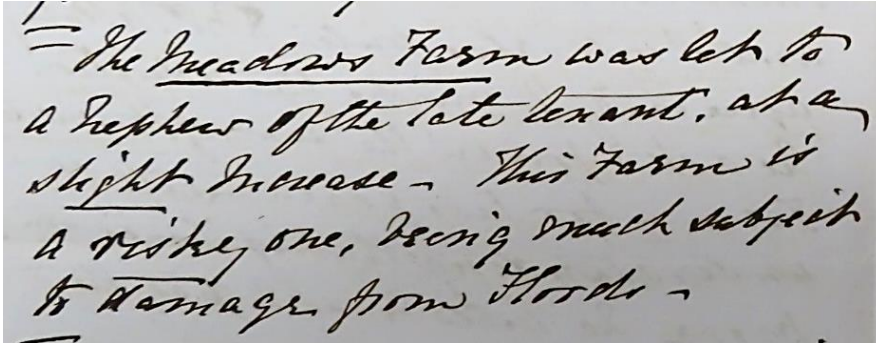 The Meadows Farm was let to
a nephew of the late tenant, at a
slight Increase - This Farm is
a risky one, being much subject
to damage from Floods -